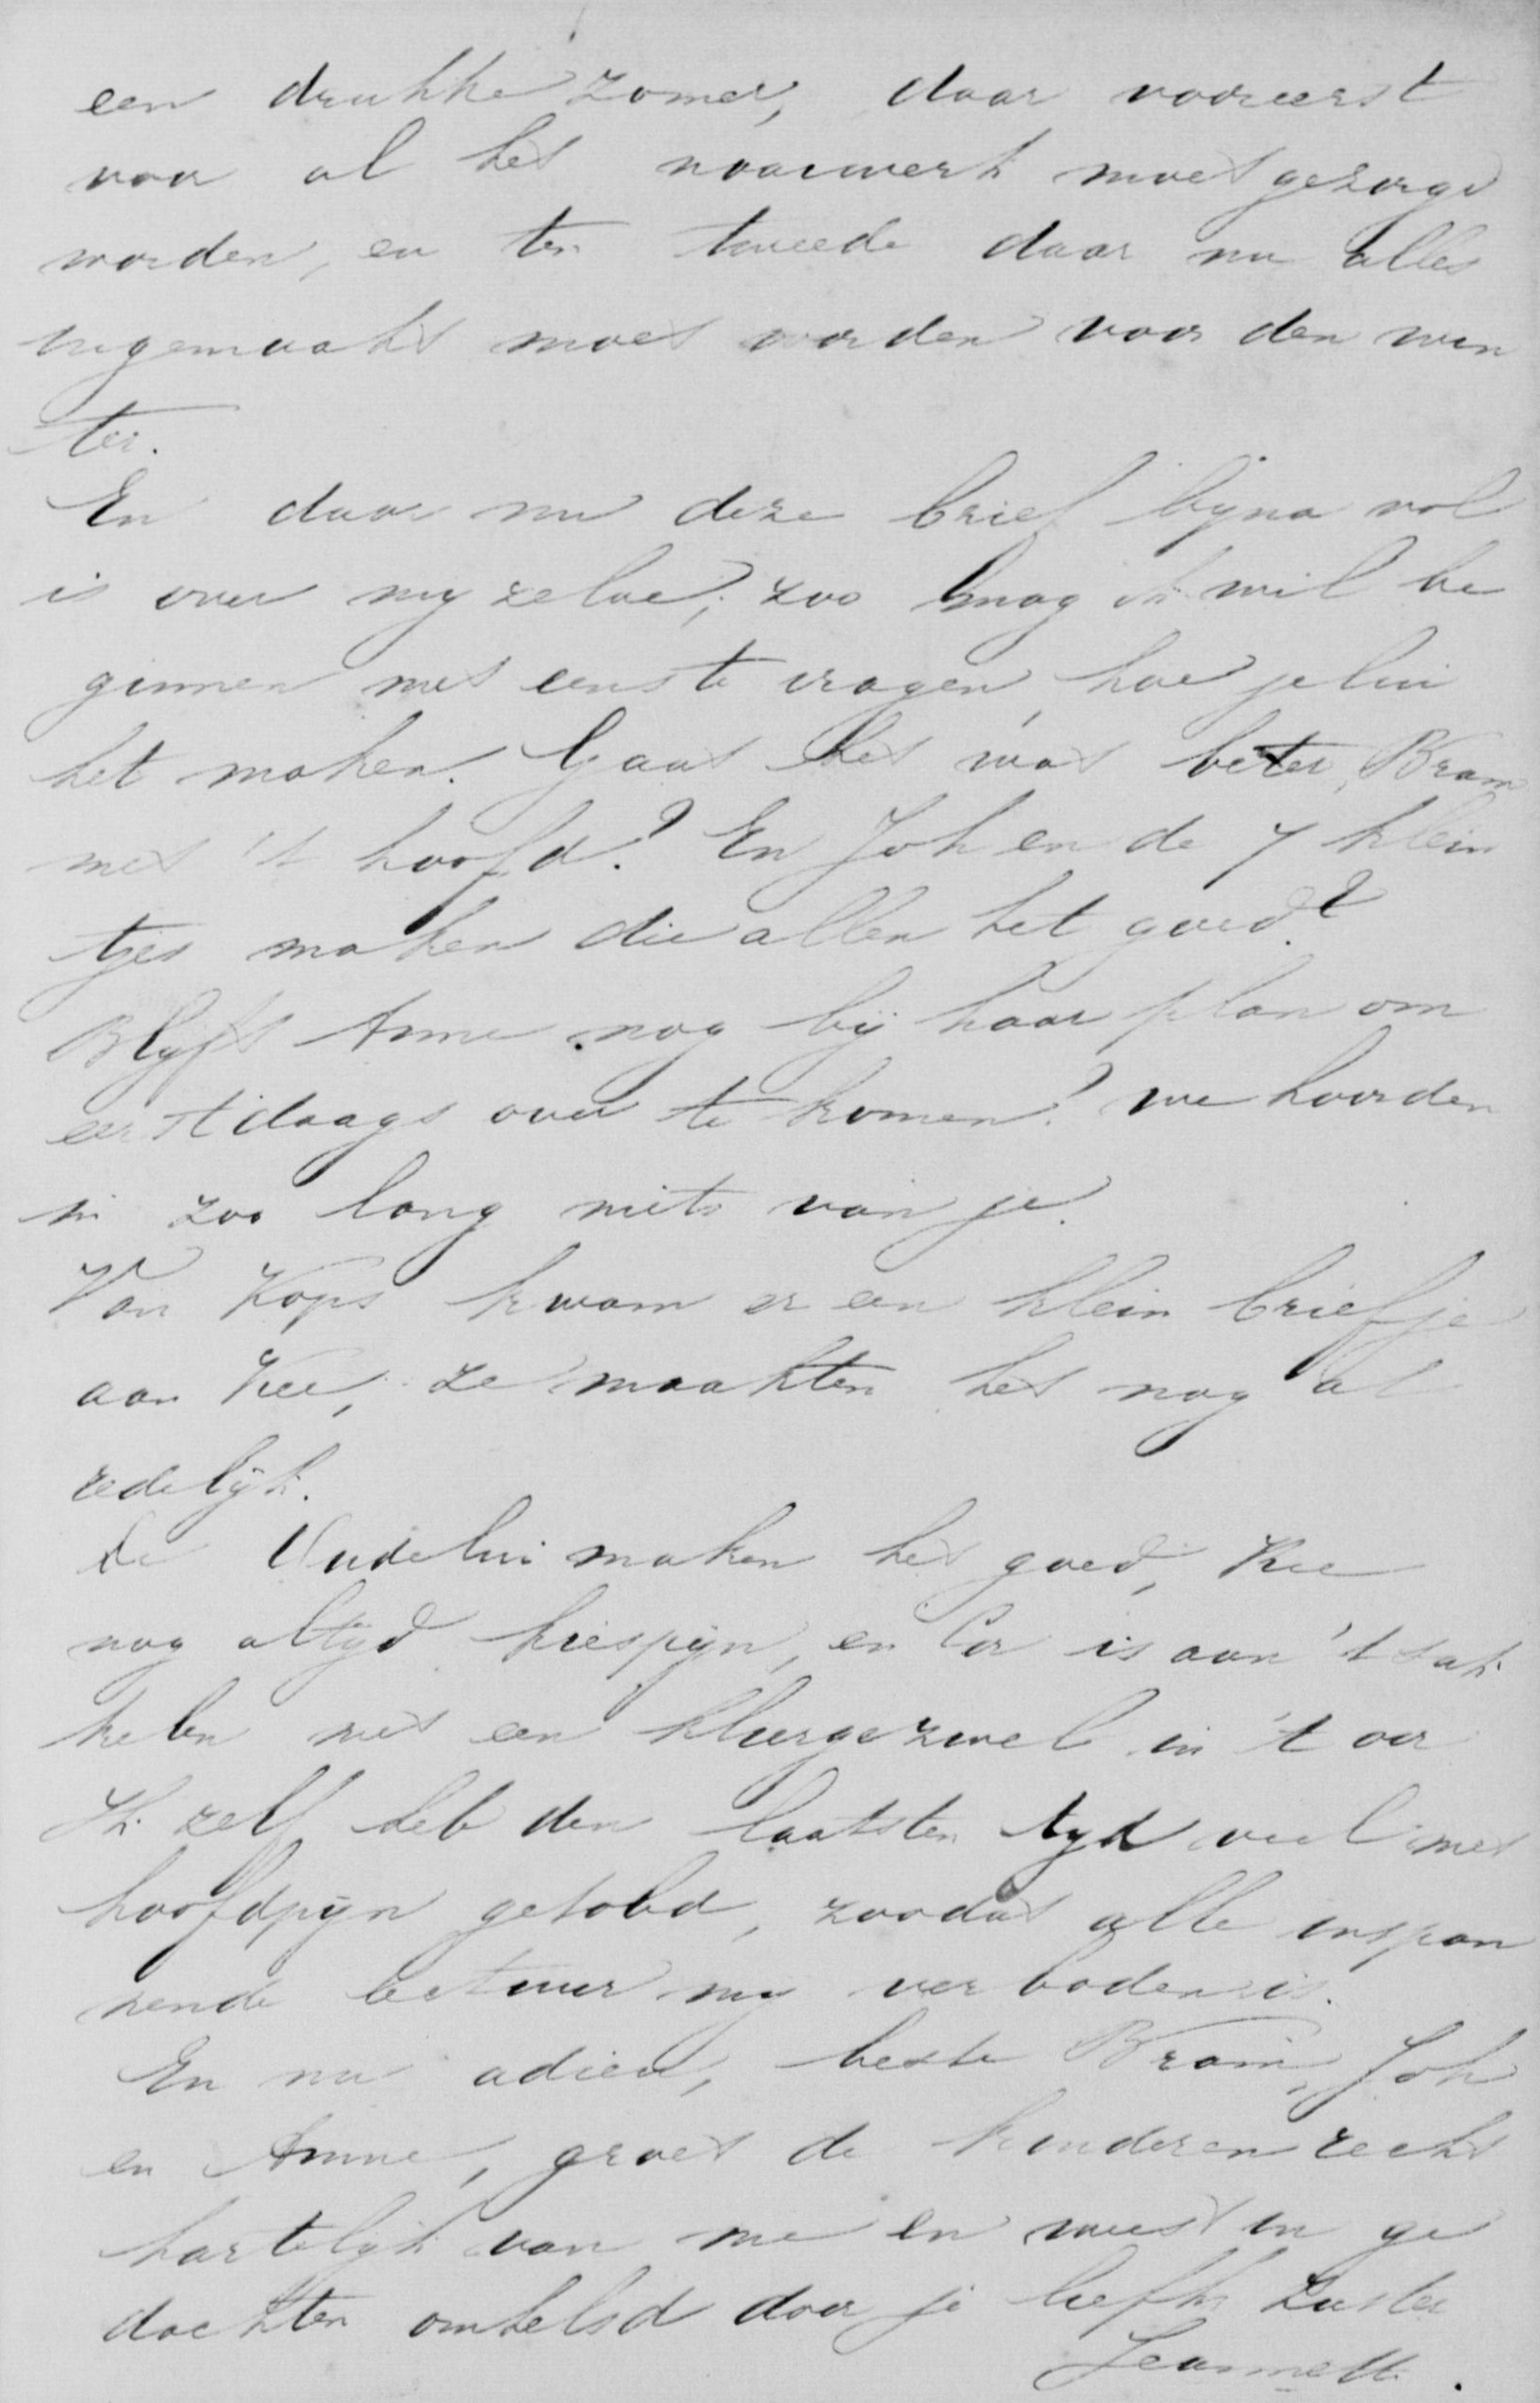 een drukke zomer, daar vooreerst
voor al het naaiwerk moet gezorgd
worden, en ten tweede daar nu alles
ingemaakt moet worden voor den win
ter.
En daar nu deze brief bijna vol
is over my zelve, zoo mag ik wil be
ginnen met eens te vragen, hoe jelui
het maken. Gaat het wat beter, Bram
met 't hoofd? En Joh en de 7 klein
tjes maken die allen het goed?
Blyft Anne nog bij haar plan om
eerstdaags over te komen? we hoorden
in zoo lang niets van je.
Van Kops kwam er een klein briefje
aan Kee, ze maakten het nog al
redelijk.
de Oudelui maken het goed, Kee
nog altijd kiespijn, en Cor is aan 't suk
kelen met een kliergezwel in 't oor
Ik zelf heb den laatsten tyd veel met
hoofdpijn getobd, zoodat alle inspan
nende lectuur my verboden is.
En nu adieu, beste Bram, Joh
en Anne, groet de kinderen recht
hartelijk van me en weest in ge
dachten omhelsd door je liefh zuster
Jeannette.